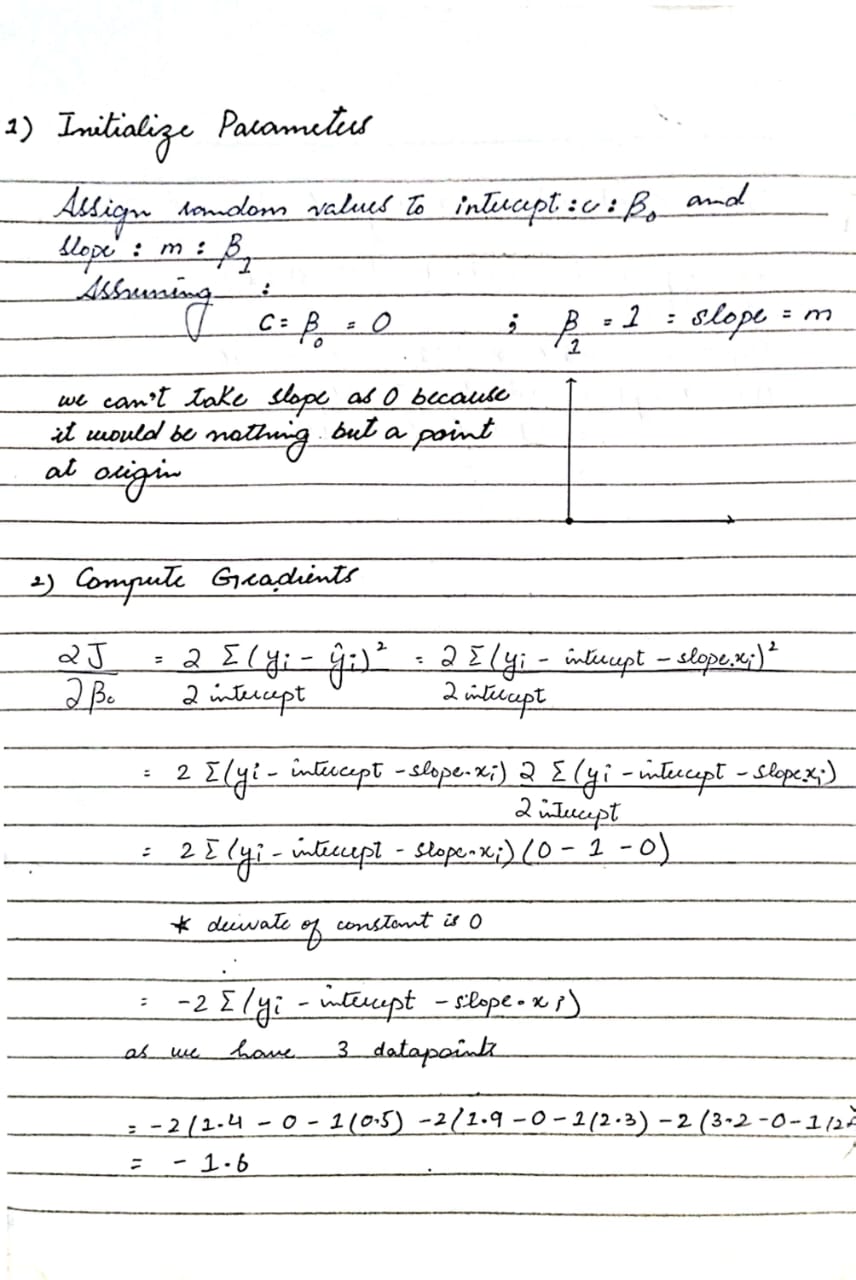 1) Initialize Parameters
Assign random values to intercept : c : β₀ and
slope : m : β₁
Assuming :
C = β₀ = 0 ; β₁ = 1 = slope = m
we can't take slope as 0 because
it would be nothing but a point
at origin
2) Compute Gradients
∂J/∂β₀ = ∂ Σ(yi - ŷi)²/∂ intercept = ∂ Σ(yi - intercept - slope.xi)²/∂ intercept
= 2 Σ(yi - intercept - slope.xi) ∂ Σ(yi - intercept - slope.xi)/∂ intercept
= 2 Σ(yi - intercept - slope.xi) (0 - 1 - 0)
* deivate of constant is 0
= -2 Σ(yi - intercept - slope.xi)
as we have 3 datapoints
= -2(1.4 - 0 - 1(0.5) -2(1.9 - 0 - 1(2.3) -2(3.2 - 0 - 1(2
= - 1.6